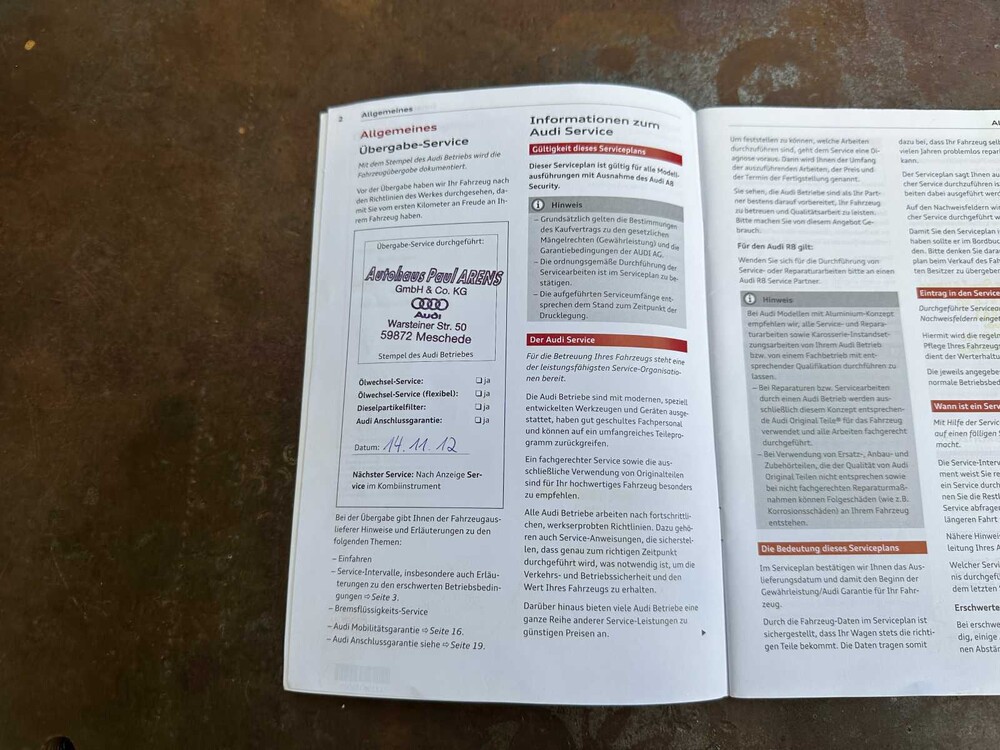 2
Allgemeines
Allgemeines
Übergabe-Service
Mit dem Stempel des Audi Betriebs wird die
Fahrzeugübergabe dokumentiert.
Vor der Übergabe haben wir Ihr Fahrzeug nach
den Richtlinien des Werkes durchgesehen, da-
mit Sie vom ersten Kilometer an Freude an Ih-
rem Fahrzeug haben.
Übergabe-Service durchgeführt:
Autohaus Paul ARENS
GmbH & Co. KG
Audi
Warsteiner Str. 50
59872 Meschede
Stempel des Audi Betriebes
Ölwechsel-Service: ❏ ja
Ölwechsel-Service (flexibel): ❏ ja
Dieselpartikelfilter: ❏ ja
Audi Anschlussgarantie: ❏ ja
Datum: 14.11.12
Nächster Service: Nach Anzeige Ser-
vice im Kombiinstrument
Bei der Übergabe gibt Ihnen der Fahrzeugaus-
lieferer Hinweise und Erläuterungen zu den
folgenden Themen:
– Einfahren
– Service-Intervalle, insbesondere auch Erläu-
terungen zu den erschwerten Betriebsbedin-
gungen ⇨ Seite 3.
– Bremsflüssigkeits-Service
– Audi Mobilitätsgarantie ⇨ Seite 16.
– Audi Anschlussgarantie siehe ⇨ Seite 19.
Informationen zum
Audi Service
Gültigkeit dieses Serviceplans
Dieser Serviceplan ist gültig für alle Modell-
ausführungen mit Ausnahme des Audi A8
Security.
Hinweis
– Grundsätzlich gelten die Bestimmungen
des Kaufvertrags zu den gesetzlichen
Mängelrechten (Gewährleistung) und die
Garantiebedingungen der AUDI AG.
– Die ordnungsgemäße Durchführung der
Servicearbeiten ist im Serviceplan zu be-
stätigen.
– Die aufgeführten Serviceumfänge ent-
sprechen dem Stand zum Zeitpunkt der
Drucklegung.
Der Audi Service
Für die Betreuung Ihres Fahrzeugs steht eine
der leistungsfähigsten Service-Organisatio-
nen bereit.
Die Audi Betriebe sind mit modernen, speziell
entwickelten Werkzeugen und Geräten ausge-
stattet, haben gut geschultes Fachpersonal
und können auf ein umfangreiches Teilepro-
gramm zurückgreifen.
Ein fachgerechter Service sowie die aus-
schließliche Verwendung von Originalteilen
sind für Ihr hochwertiges Fahrzeug besonders
zu empfehlen.
Alle Audi Betriebe arbeiten nach fortschrittli-
chen, werkserprobten Richtlinien. Dazu gehö-
ren auch Service-Anweisungen, die sicherstel-
len, dass genau zum richtigen Zeitpunkt
durchgeführt wird, was notwendig ist, um die
Verkehrs- und Betriebssicherheit und den
Wert Ihres Fahrzeugs zu erhalten.
Darüber hinaus bieten viele Audi Betriebe eine
ganze Reihe anderer Service-Leistungen zu
günstigen Preisen an.
Um feststellen zu können, welche Arbeiten
durchzuführen sind, geht dem Service eine Di-
agnose voraus. Dann wird Ihnen der Umfang
der auszuführenden Arbeiten, der Preis und
der Termin der Fertigstellung genannt.
Sie sehen, die Audi Betriebe sind als Ihr Part-
ner bestens darauf vorbereitet, Ihr Fahrzeug
zu betreuen und Qualitätsarbeit zu leisten.
Bitte machen Sie von diesem Angebot Ge-
brauch.
Für den Audi R8 gilt:
Wenden Sie sich für die Durchführung von
Service- oder Reparaturarbeiten bitte an einen
Audi R8 Service Partner.
Hinweis
Bei Audi Modellen mit Aluminium-Konzept
empfehlen wir, alle Service- und Repara-
turarbeiten sowie Karosserie-Instandset-
zungsarbeiten von Ihrem Audi Betrieb
bzw. von einem Fachbetrieb mit ent-
sprechender Qualifikation durchführen zu
lassen.
– Bei Reparaturen bzw. Servicearbeiten
durch einen Audi Betrieb werden aus-
schließlich diesem Konzept entsprechen-
de Audi Original Teile® für das Fahrzeug
verwendet und alle Arbeiten fachgerecht
durchgeführt.
– Bei Verwendung von Ersatz-, Anbau- und
Zubehörteilen, die der Qualität von Audi
Original Teilen nicht entsprechen sowie
bei nicht fachgerechten Reparaturmaß-
nahmen können Folgeschäden (wie z.B.
Korrosionsschäden) an Ihrem Fahrzeug
entstehen.
Die Bedeutung dieses Serviceplans
Im Serviceplan bestätigen wir Ihnen das Aus-
lieferungsdatum und damit den Beginn der
Gewährleistung/Audi Garantie für Ihr Fahr-
zeug.
Durch die Fahrzeug-Daten im Serviceplan ist
sichergestellt, dass Ihr Wagen stets die richti-
gen Teile bekommt. Die Daten tragen somit
dazu bei, dass Ihr Fahrzeug
vielen Jahren problemlos
kann.
Der Serviceplan sagt Ihnen
cher Service durchzuführen
beiten dabei ausgeführt
Auf den Nachweisfeldern
cher Service durchgeführt
Damit Sie den Serviceplan
haben sollte er im
Bitte denken Sie
plan beim Verkauf des
ten Besitzer zu übergeben
Eintrag in den
Durchgeführte
Nachweisfeldern
Hiermit wird die
Pflege Ihres Fahrzeugs
dient der
Die jeweils
normale
Wann ist ein
Mit Hilfe der
auf einen fälligen
macht.
Die
ment weist Sie
ein Service
nen Sie die
Service
längeren Fahrt
Nähere
leitung Ihres
Welcher
nis
dem letzten
Erschwerte
Bei
dig, einige
nen